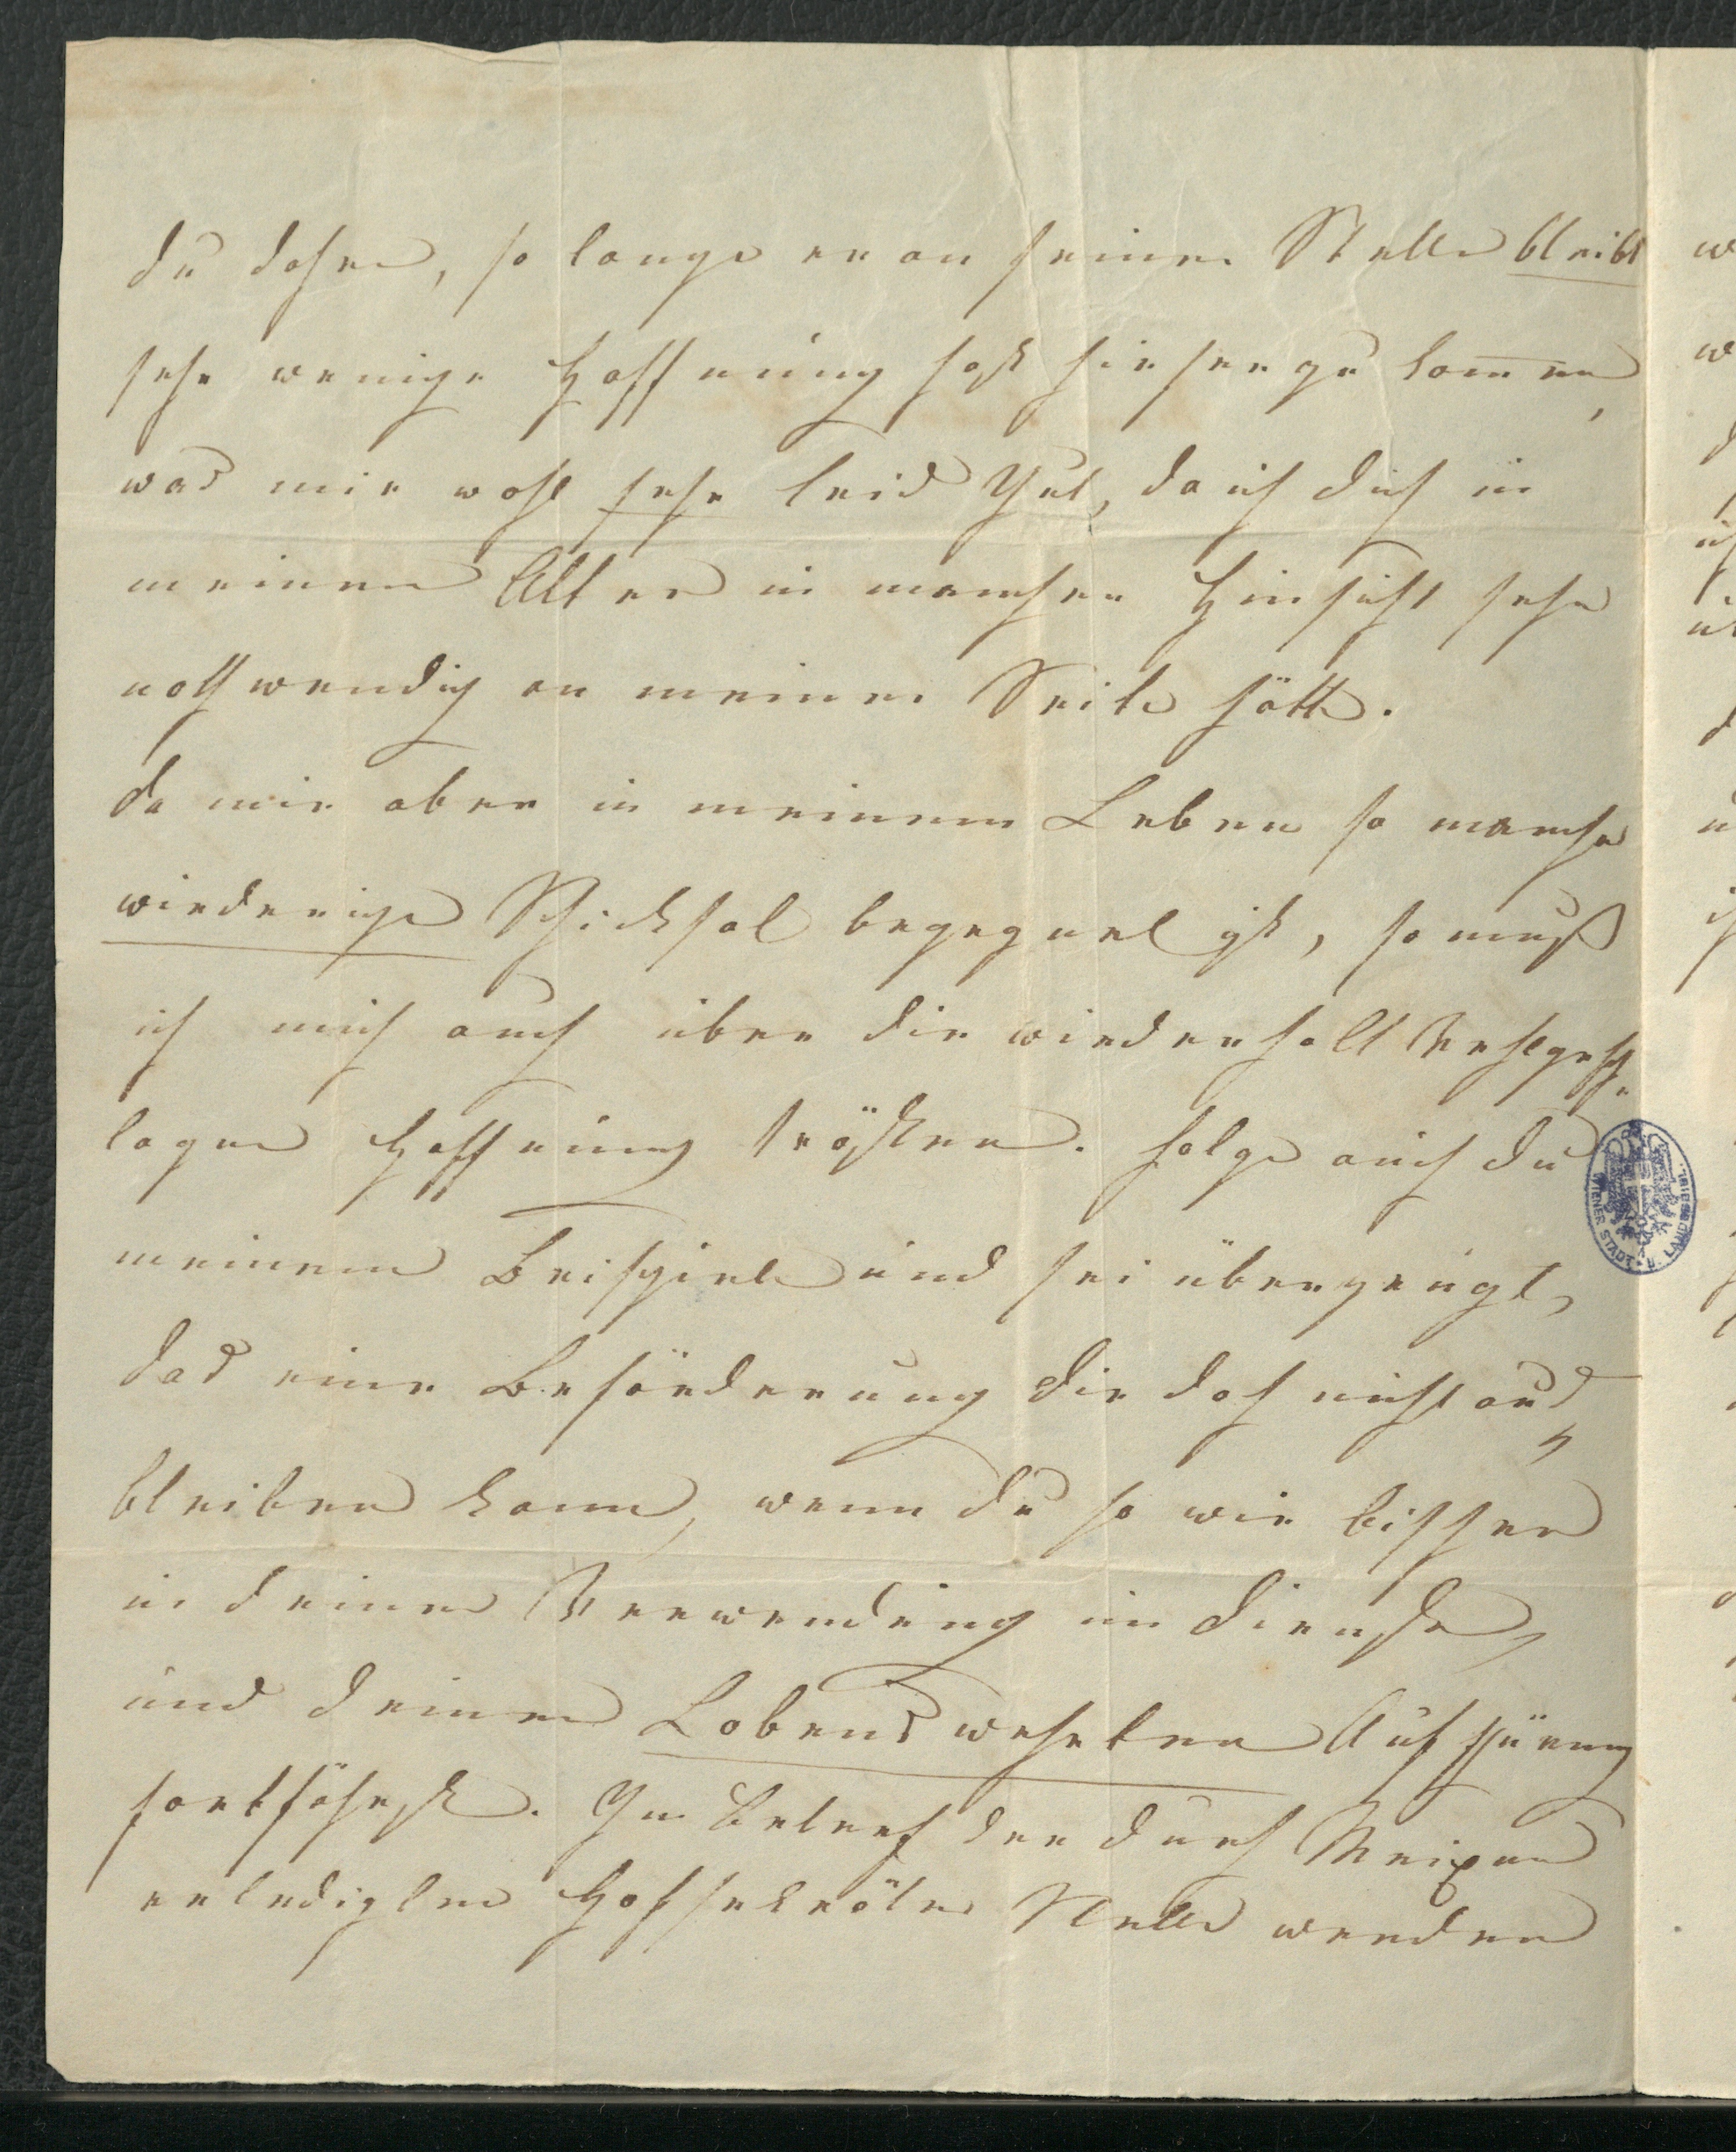 du daher, so lange er an seiner Stelle bleibt
sehr wenige Hoffnung hast hieher zu kommen,
was mir wohl sehr leid thut, da ich dich in
meinem Alter in mancher Hinsicht sehr
nothwendig an meiner Seite hätte.
da mir aber in meinem Leben so manche
wiederige Schicksal begegnet ist, so muß
ich mich auch über die wiederholt
lagene Hoffnung trösten. folge auch du
meinem Beispiele und sei überzeugt,
das eine Beförderung dir doch nicht aus
bleiben kann, wenn du so wie bisher
in deiner Verwendung im Dienste,
und deiner Lobenswehrten Aufführung
fortfährst. In Betref der durch
erledigten Hofsekretärs Stelle werden
WIENER STADT- U. LANDESBIBL.